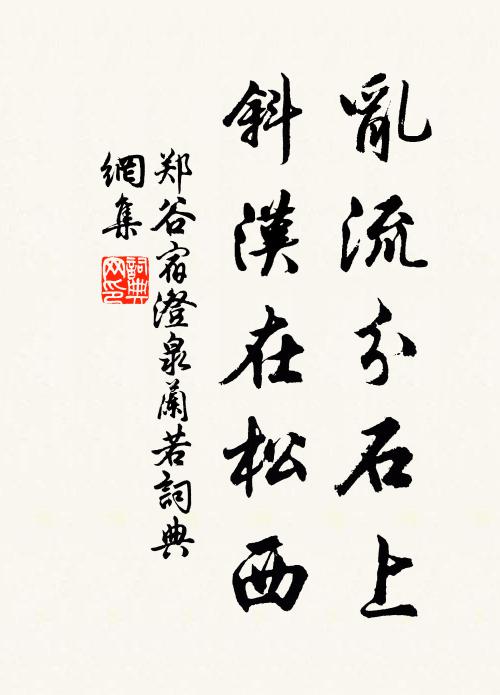 亂流分石上
斜漢在松西
郑谷宿澄泉蘭若詞典
網集
詞典網印